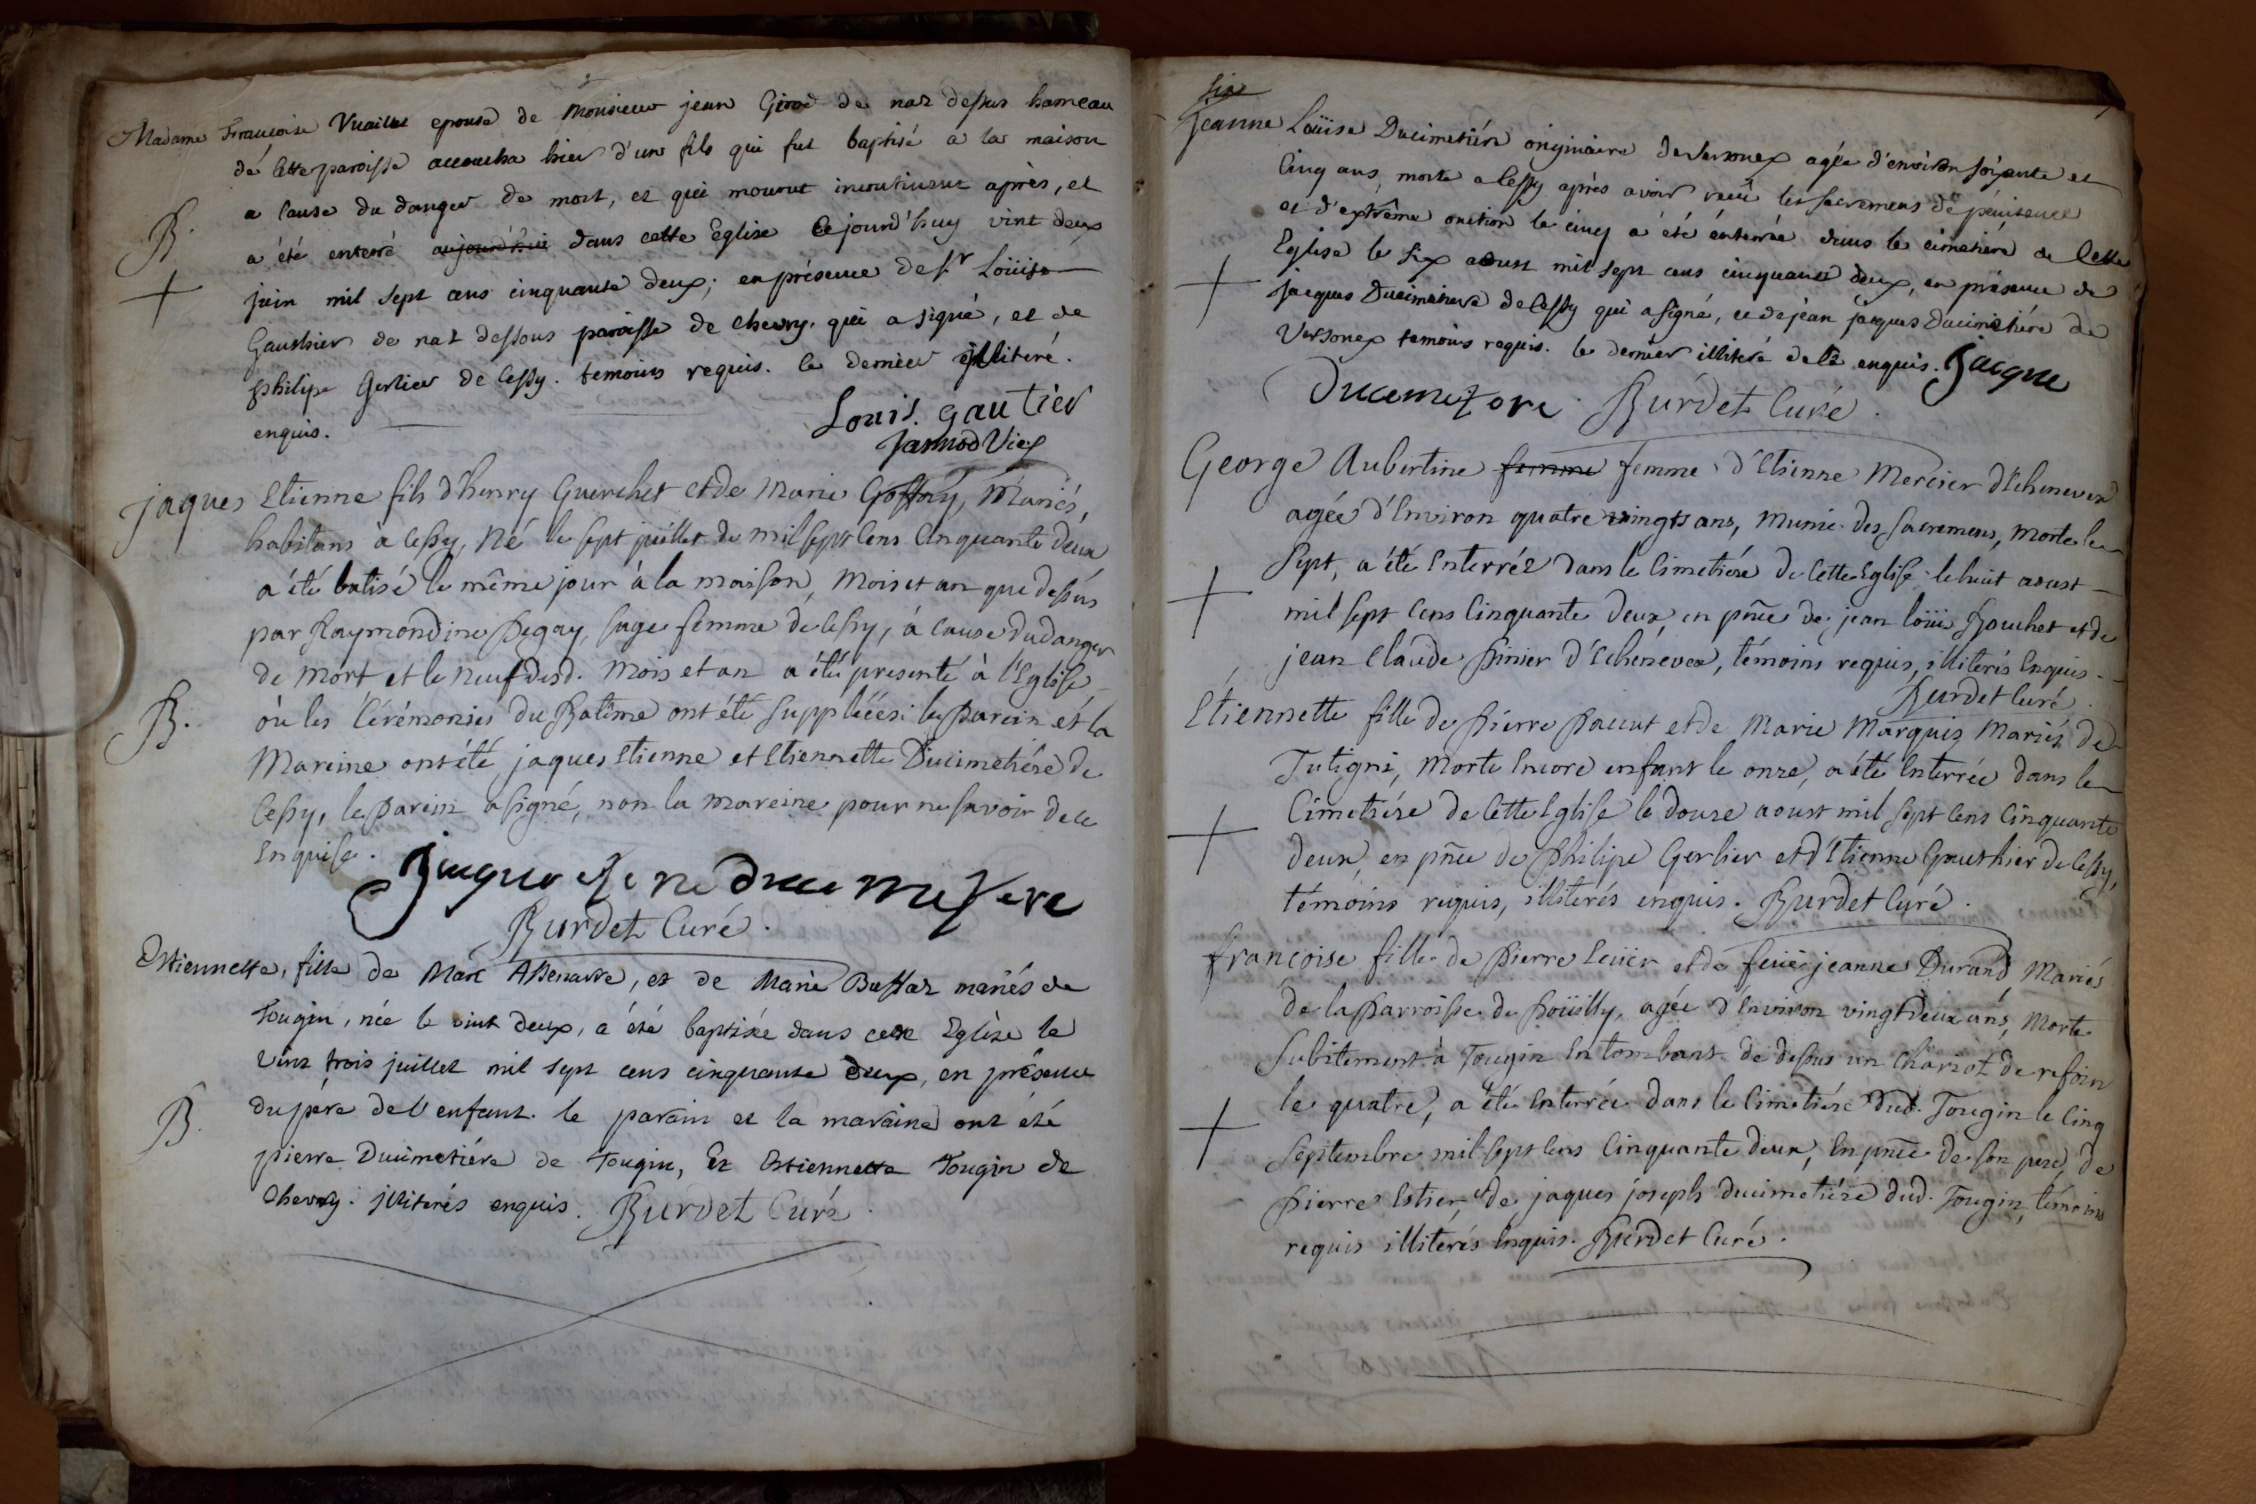 Madame Francoise Vuaillet epouse de Monsieur jean Girod de naz dessus hameau
de cette paroisse accoucha hier d'un fils qui fut baptisé a la maison
a cause du danger de mort, et qui mourut incontinent après, et
B. a été enterré aujourd'hui dans cette Eglise Cejourd'huy vint deux
+ juin mil sept cens cinquante deux; en présence de Sr Loüis
Gauthier de naz dessous paroisse de chevry. qui a signé, et de
philipe Gerlier de Cessy. temoins requis. le dernier illiteré.
enquis.
Louis. gautier
Jannod Vic.
jaques Etienne fils d'henry Guerchet et de Marie Goffny, Mariés,
habitans à Cessy, Né le sept juillet de mil sept Cens Cinquante deux
a été batisé le même jour à la maison, Mois et an que dessus
par Raymondine Pegay, sage femme de Cessy, à Cause du danger
de Mort et le neuf desd. Mois et an a été presenté à l'Eglise
B. où les Cérémonies du Batême ont été suppléées: le Parein et la
Mareine ont été jaques Etienne et Etiennette Ducimetiére de
Cessy, le Parein a signé, non la mareine pour ne savoir de ce
Enquise.
Jaque etene ducemetere
Burdet Curé.
Estiennette, fille de Marc Abenarre, et de Marie Buffaz mariés de
Tougin, née le vint deux, a été baptisée dans cette Eglise le
vint trois juillet mil sept cens cinquante deux, en présence
B. du pere de l'enfant. le parain et la maraine ont été
pierre Ducimetiére de Tougin, Et Estiennette Tougin de
Chevry. illiterés enquis. Burdet Curé.
six
Jeanne Loüise Ducimetiére originaire de Versonex agée d'environ soixante et
Cinq ans, morte a Cessy après avoir recû les sacremens de pénitence
et d'extrême onction le cinq a été enterrée dans le cimetiére de Cette
+ Eglise le six aoust mil sept cens cinquante deux, en présence de
jacques Ducimetiere de Cessy qui a signé, et de jean jacques Ducimetiére de
Versonex temoins requis. le dernier illiteré de ce enquis. jacque
Ducemetere Burdet Curé.
George Aubertine femme femme d'Etienne Mercier d'Echenevex
agée d'Environ quatre vingts ans, Munie des sacremens, Morte le
sept, a été Enterrée dans le Cimetiére de Cette Eglise le huit aoust
+ mil sept Cens Cinquante deux, en pñce de jean loüis Bouchet et de
jean Claude Pinier d'Echenevex, témoins requis, illiterés Enquis.
Burdet Curé.
Etiennette fille de Pierre Paccut et de Marie Marquis Mariés de
Tutigni, Morte Encore enfant le onze, a été Enterrée dans le
+ Cimetiére de Cette Eglise le douze aoust mil sept Cens Cinquante
deux, en pñce de Philipe Gerlier et d'Etienne Gauthier de Cessy,
témoins requis, illiterés enquis. Burdet Curé.
francoise fille de Pierre leüier et de feüe jeanne Durand, Mariés
de la Parroisse de Poüilly, agée d'Environ vingt deux ans, Morte
Subitement à Tougin En tombant de dessus un Chariot de refoin
+ le quatre, a été Enterrée dans le Cimetiére dud. Tougin le Cinq
Septembre mil sept Cens Cinquante deux, En pñce de son pere, de
Pierre Estier, et de jaques joseph Ducimetiére dud. Tougin, témoins
requis illitérés Enquis. Burdet Curé.